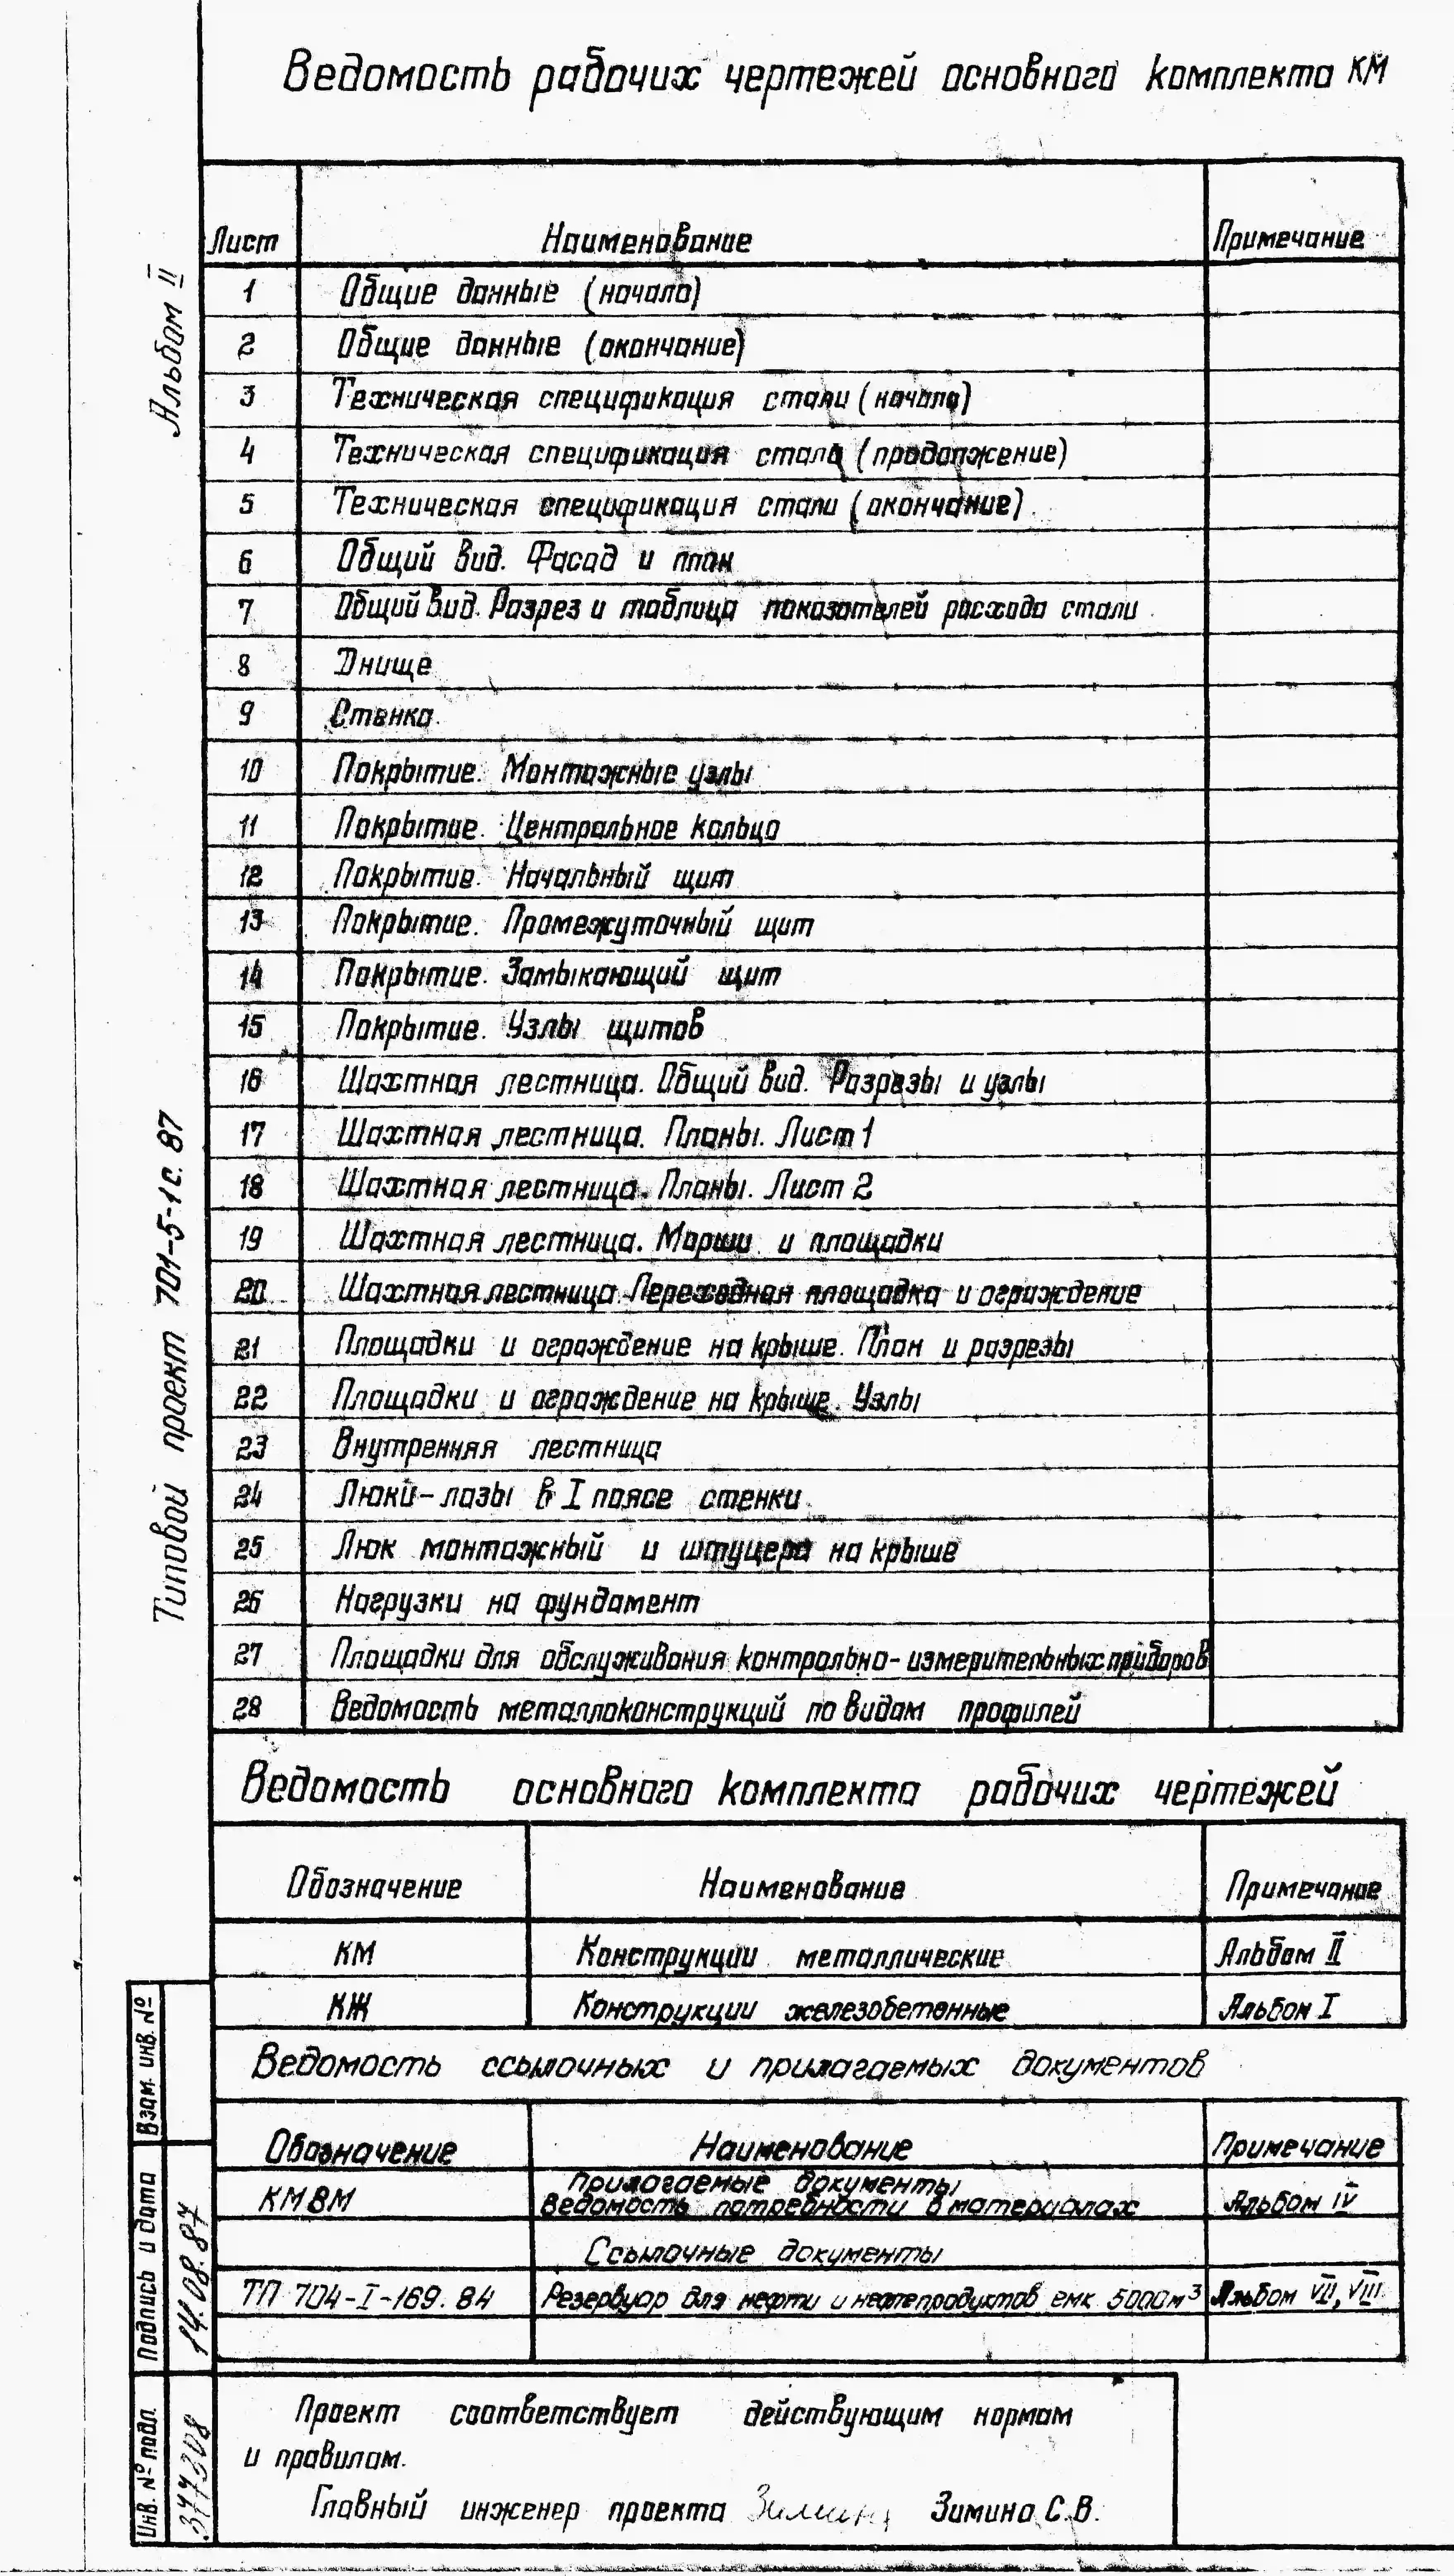 Ведомость рабочих чертежей основного комплекта КМ
Лист Наименование Примечание
1 Общие данные (начало)
2 Общие данные (окончание)
3 Техническая спецификация стали (начало)
4 Техническая спецификация стали (продолжение)
5 Техническая спецификация стали (окончание)
6 Общий вид. Фасад и план
7 Общий вид. Разрез и таблица показателей расхода стали
8 Днище
9 Стенка
10 Покрытие. Монтажные узлы
11 Покрытие. Центральное кольцо
12 Покрытие. Начальный щит
13 Покрытие. Промежуточный щит
14 Покрытие. Замыкающий щит
15 Покрытие. Узлы щитов
16 Шахтная лестница. Общий вид. Разрезы и узлы
17 Шахтная лестница. Планы. Лист 1
18 Шахтная лестница. Планы. Лист 2
19 Шахтная лестница. Марши и площадки
20 Шахтная лестница Переходная площадка и ограждение
21 Площадки и ограждение на крыше. План и разрезы
22 Площадки и ограждение на крыше. Узлы
23 Внутренняя лестница
24 Люки-лазы в I поясе стенки
25 Люк монтажный и штуцера на крыше
26 Нагрузки на фундамент
27 Площадки для обслуживания контрольно-измерительных приборов
28 Ведомость металлоконструкций по видам профилей
Ведомость основного комплекта рабочих чертежей
Обозначение Наименование Примечание
КМ Конструкции металлические Альбом II
КЖ Конструкции железобетонные Альбом I
Ведомость ссылочных и прилагаемых документов
Обозначение Наименование Примечание
Прилагаемые документы
КМВМ Ведомость потребности в материалах Альбом IV
Ссылочные документы
ТП 704-I-169.84 Резервуар для нефти и нефтепродуктов емк. 5000м³ Альбом VII, VIII
Проект соответствует действующим нормам
и правилам.
Главный инженер проекта Зимина Зимина С.В.
Альбом II
Типовой проект 701-5-1с.87
Взам. инв. №
Подпись и дата 14.08.87
Инв. № подл.